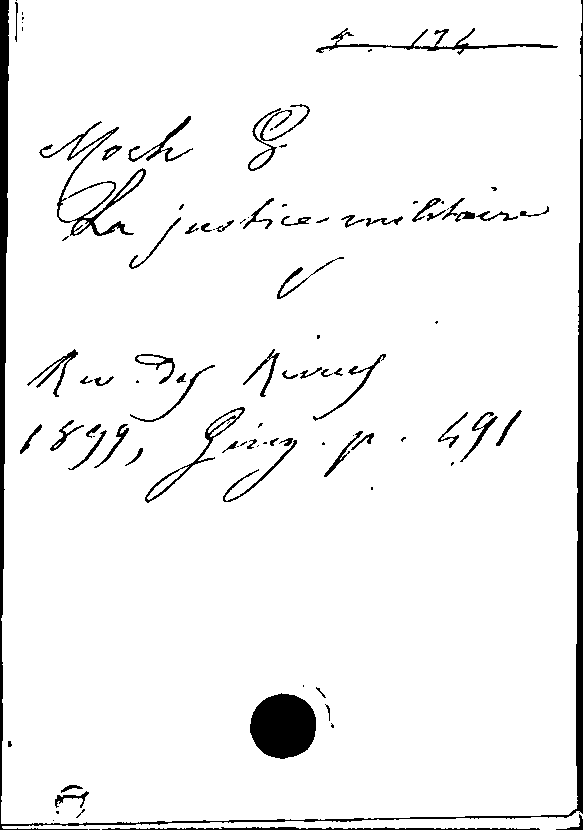 5. 174
Moch G
La justice militaire
Rev. des Revues
1899, p. 491